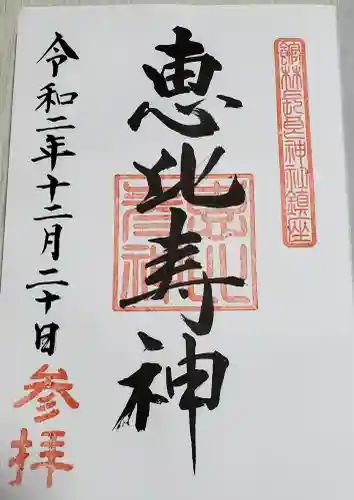 館林長良神社鎮座
恵比寿神
令和二年十二月二十日
参拝